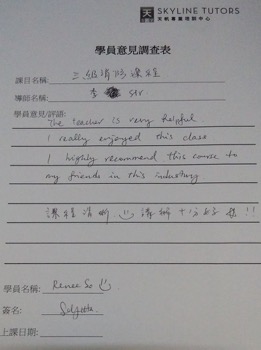 SKYLINE TUTORS
學員意見調查表
課目名稱: 三級清防課程
導師名稱: 李 Sir.
學員意見/評語:
The teacher is very helpful
I really enjoyed this class
I highly recommend this course to
my friends in this industry
課程清晰. 講解十分好!!
學員名稱: Renee So
簽名:
上課日期: